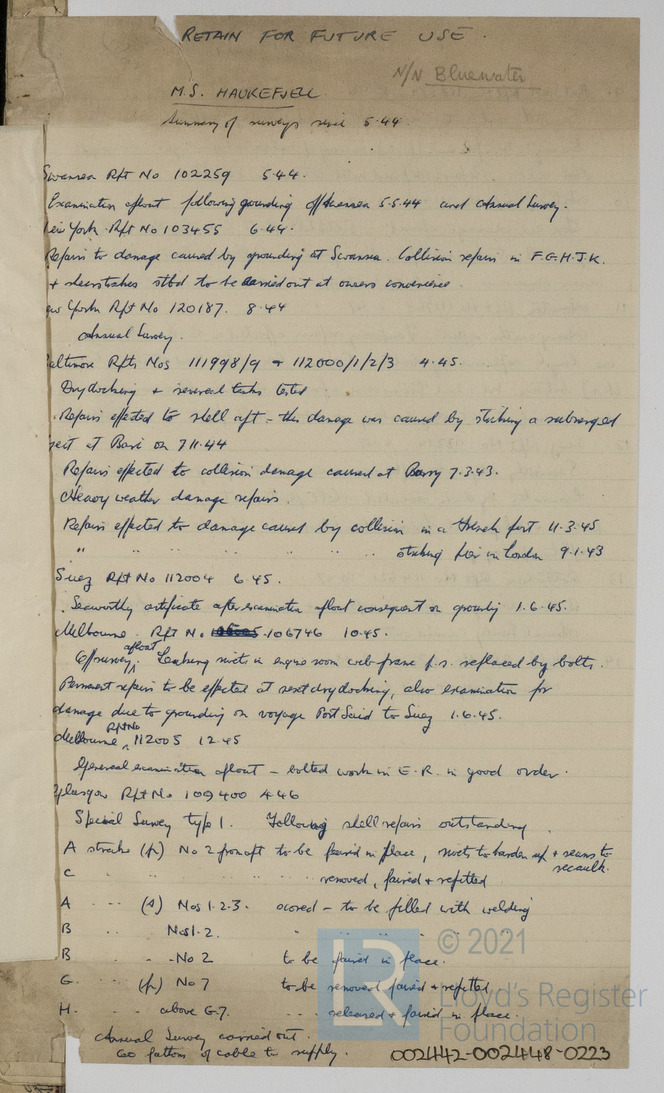 RETAIN FOR FUTURE USE.
N/N Bluewater
M.S. HAUKEFJELL
Summary of surveys since 5.44
Swansea Rpt No 102259 5.44.
Examination afloat following grounding off Swansea 5.5.44 and Annual Survey.
ew York Rpt No 103455 6.44.
Repairs to damage caused by grounding at Swansea. Collision repairs in F.G.H.J.K.
+ sheerstrakes stbd to be carried out at owners convenience.
ew York Rpt No 120187. 8.44
Annual Survey.
altimore Rpts Nos 111998/9 + 112000/1/2/3 4.45.
Drydocking + several tanks tested
Repairs effected to shell aft - this damage was caused by striking a submerged
ject at Bari on 7.11.44
Repairs effected to collision damage caused at Barry 7.3.43.
Heavy weather damage repairs.
Repairs effected to damage caused by collision in a French port 11.3.45
" .. .. .. .. striking pier in London 9.1.43
Suez Rpt No 112004 6.45.
Seaworthy certificate after examination afloat consequent on grounding 1.6.45.
Melbourne. Rpt No 106746 10.45.
afloat. Leaking rivets in engine room web frame p.s. replaced by bolts.
Permanent repairs to be effected at next drydocking, also examination for
damage due to grounding on voyage Port Said to Suez 1.6.45.
Melbourne Rpt No 112005 12.45
General examination afloat - bolted work in E.R. in good order.
Glasgow Rpt No 109400 4.46
Special Survey type 1. Following shell repairs outstanding.
A strake (p) No 2 from aft to be faired in place, rivets to harden up + seams to recaulk.
C .. .. .. .. .. removed, faired + refitted
A .. .. (s) Nos 1.2.3. scored - to be filled with welding
B Nos 1-2. " .. .. .. ..
B .. .. -No 2 to be faired in place.
G. .. .. (p) No 7 to be removed faired + refitted
H. .. .. above G.7. .. .. released + faired in place.
Annual Survey carried out.
60 fathoms of cable to supply.
002442-002448-0223
LR © 2021
Lloyd's Register
Foundation